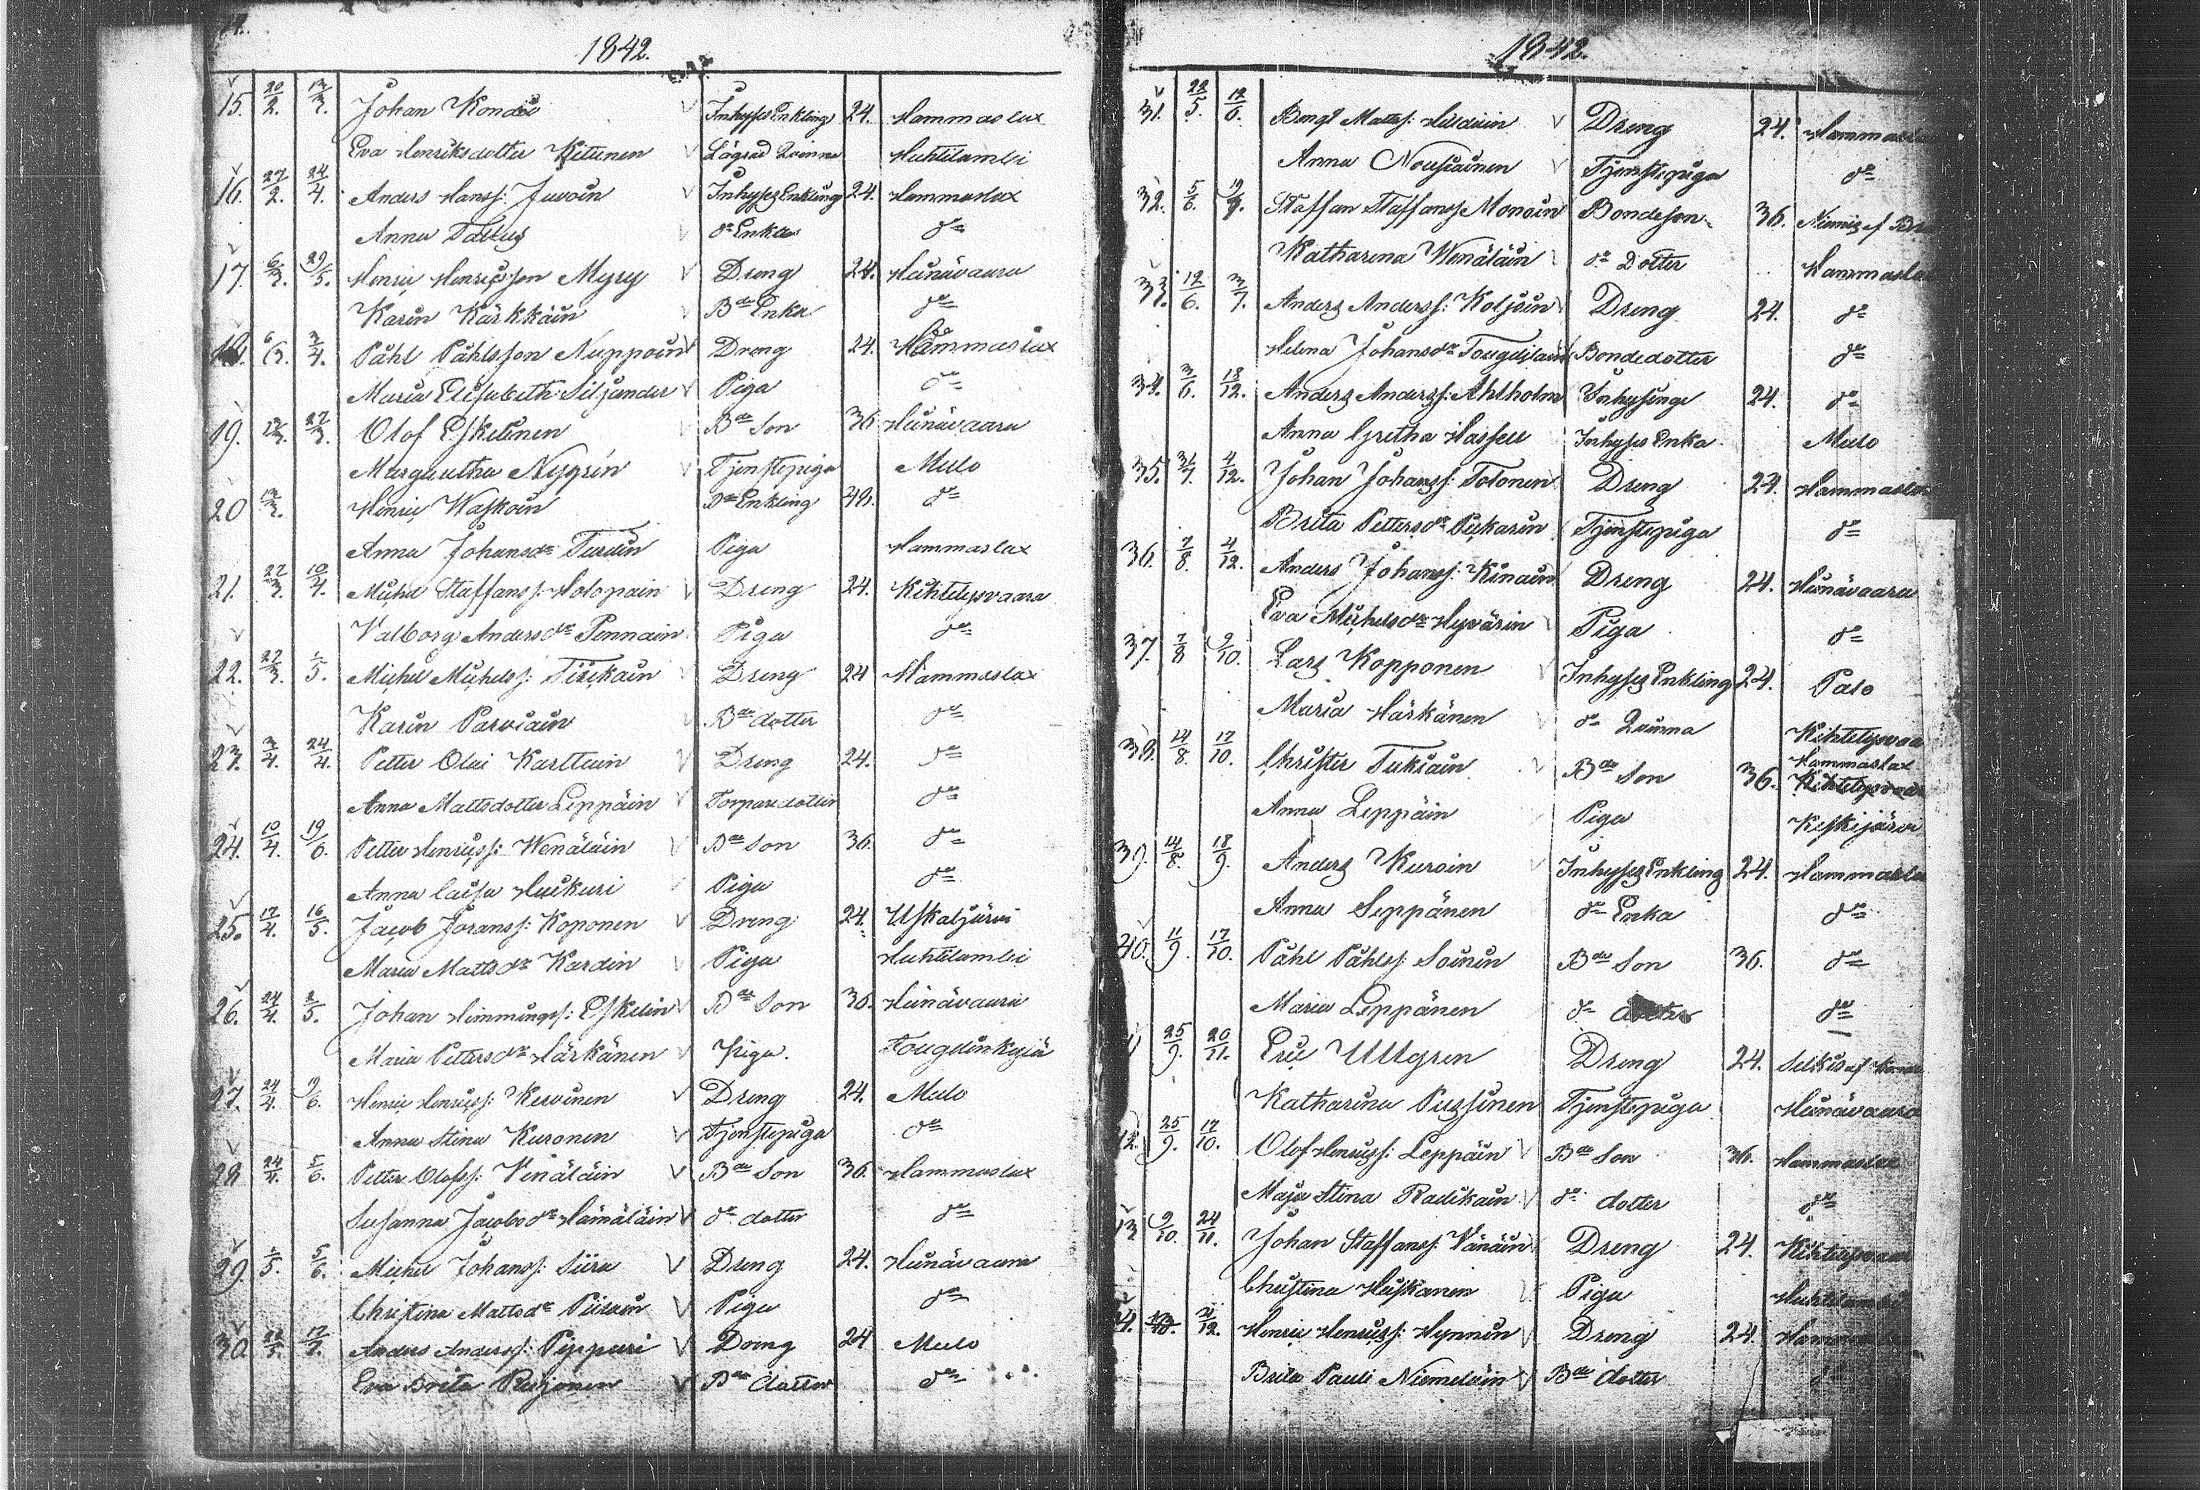 1842.
15. 20/2. 13/3. Johan Kondi Inhyses Enkling 24. Hammaslax
Eva Henriksdotter Kitunen Lägrad Qvinna Huhtilambi
16. 27/2. 24/4. Anders Hanss: Juvoin Inhyses Enkling 24. Hammaslax
Anna do Enka do
17. 6/3. 29/5. Henric Henricsson Myry Dreng 24. Heinävaara
Karin Kärkkäin Bde Enka do
18. 6/3. 3/4. Påhl Påhlsson Nuppoin Dreng 24. Hammaslax
Maria Elisabeth Siljander Piga do
19. 27/3. Olof Eskelinen Bde Son 36 Heinävaara
Margaretha Nygrén Tjenstepiga Mulo
20 13/3. Henric Waskoin Bde Enkling do
Anna Johansdr Turuin Piga Hammaslax
21. 27/3. 10/4. Michel Staffanss: Holopain Dreng 24. Kihtelysvaara
Valborg Andersdr Pennain Piga do
22. 27/3. 1/5. Michel Michelss: Tiikain Dreng 24 Hammaslax
Karin Parviain Bde dotter do
23. 3/4. 24/4. Petter Olai Karttuin Dreng 24. do
Anna Mattsdotter Leppäin Torparedotter do
24. 10/4. 19/6. Petter Henricss: Wenäläin Bde Son 36. do
Anna Caisa Huikuri Piga do
25. 17/4. 16/5. Jacob Göranss: Koponen Dreng 24. Uskaljärvi
Maria Mattsdr Kardin Piga Huhtilambi
26. 24/4. 8/5. Johan Hemmingss: Eskelin Bde Son 36. Heinävaara
Maria Pettersdr Härkänen Piga. Tougeinkylä
27. 24/4. 9/6. Henric Henricss: Kervinen Dreng 24. Mulo
Anna Stina Kuronen Tjenstepiga do
28 24/4. 5/6. Petter Olofss: Venäläin Bde Son 36. Hammaslax
Susanna Jacobsdr Hämäläin do dotter do
29. 1/5. 5/6. Michel Johanss: Siira Dreng 24. Heinävaara
Christina Mattsdr Piirain Piga do
30. 17/7. Anders Anderss: Pippuri Dreng 24 Mulo
Eva Brita Reijonen Bde dotter do
1842.
31. 22/5. 12/6. Bengt Matts: Hildein Dreng 24. Hammasla
Anna Nousiainen Tjenstepiga do
32. 5/6. Staffan Staffanss Monoin Bondeson 36.
Katharina Wenäläin do Dotter Hammasla
33. 12/6. 3/7. Anders Anderss: Koljoin Dreng 24. do
Helena Johansdr Tougeilain Bondedotter do
34. 3/6. 18/12. Anders Anderss: Ahlholm Inhysing 24. do
Anna Gretha Hassell Inhyses Enka Mulo
35. 31/7. 4/12. Johan Johanss: Tolonen Dreng 24. Hammasla
Brita Pettersdr Piskarin Tjenstepiga do
36. 7/8. 4/12. Anders Johanss: Kinain Dreng 24. Heinävaara
Eva Michelsdr Hyvärin Piga do
37. 7/8 9/10. Lars Kopponen Inhyses Enkling 24. Palo
Maria Härkänen do Qvinna Kihtelysvaa
38. 14/8. 17/10. Christer Tuksain Bde Son 36. Hammaslax Kihtelysvaar
Anna Leppäin Piga Keskijärvi
39. 14/8. 18/9. Anders Kuroin Inhyses Enkling 24. Hammasla
Anna Seppänen do Enka do
40. 11/9. 17/10. Påhl Påhlss: Soinin Bde Son 36. do
Maria Leppänen do dotter do
25/9. 20/11. Eric Ullgren Dreng 24.
Katharina Pussinen Tjenstepiga Heinävaara
42. 25/9. 17/10. Olof Henricss: Leppäin Bde Son 36. Hammaslax
Maja Stina Radikain do dotter do
43 9/10. 24/11. Johan Staffanss: Vänäin Dreng 24. Kihtelysvaar
Christina Huiskanen Piga Huhtilambi
44. Henric Henricss: Hynnin Dreng 24.
Brita Pauli Niemeläin Bde dotter